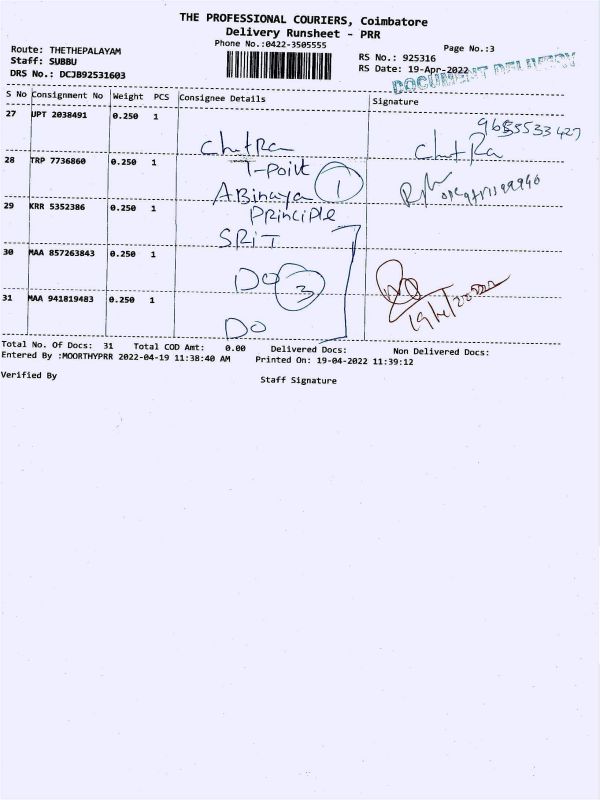 THE PROFESSIONAL COURIERS, Coimbatore
Delivery Runsheet - PRR
Phone No.:0422-3505555
Page No.:3
Route: THETHEPALAYAM
RS No.: 925316
Staff: SUBBU
RS Date: 19-Apr-2022
DRS No.: DCJB92531603
DOCUMENT DELIVERY
S No Consignment No Weight PCS Consignee Details Signature
27 UPT 2038491 0.250 1
Chitra
Chitra
28 TRP 7736860 0.250 1
T-Point
ABinaya
1
29 KRR 5352386 0.250 1
PRinciPle
SRiT
30 MAA 857263843 0.250 1
DO
3
31 MAA 941819483 0.250 1
DO
Total No. Of Docs: 31 Total COD Amt: 0.00 Delivered Docs: Non Delivered Docs:
Entered By :MOORTHYPRR 2022-04-19 11:38:40 AM Printed On: 19-04-2022 11:39:12
Verified By
Staff Signature